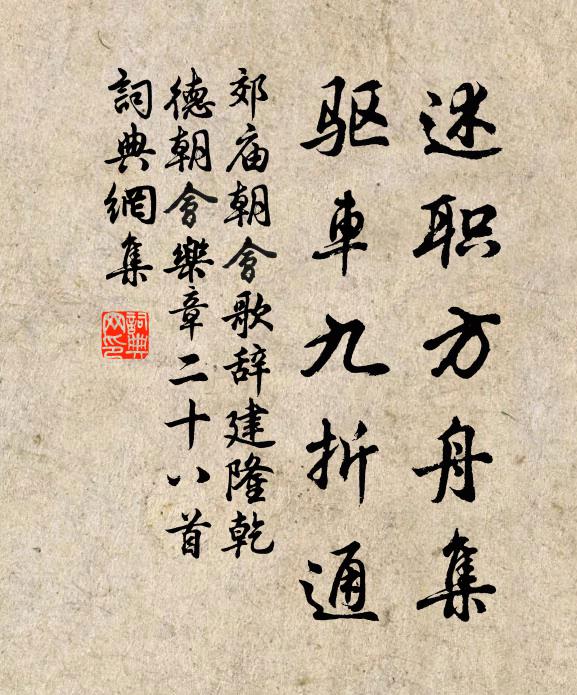 述职方舟集
驱車九折通
郊庙朝會歌辞建隆乾
德朝會樂章二十八首
詞典網集
詞典
网印